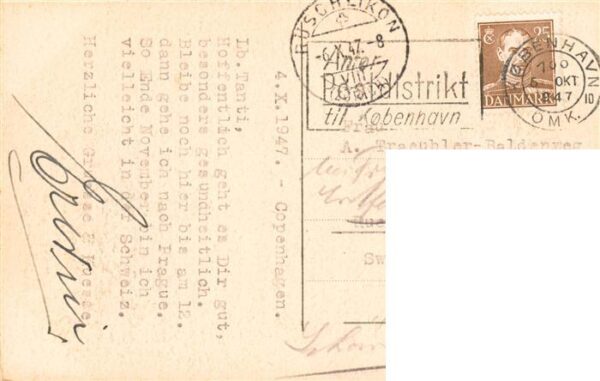 4.X.1947. - Copenhagen.
Lb Tanti,
Hoffentlich geht es Dir gut,
besonders gesundheitlich.
Bleibe noch hier bis am 12.
dann gehe ich nach Prague.
So Ende November bin ich
vielleicht in der Schweiz.
Herzliche Gruesse & Kuesse
RÜSCHLIKON
-6.X.47.-8
Anfør
Postdistrikt
til København
25
DANMARK
KØBENHAVN
OKT
1947
OMK.
Frau
A. Traeubler-Baldenweg
Sw